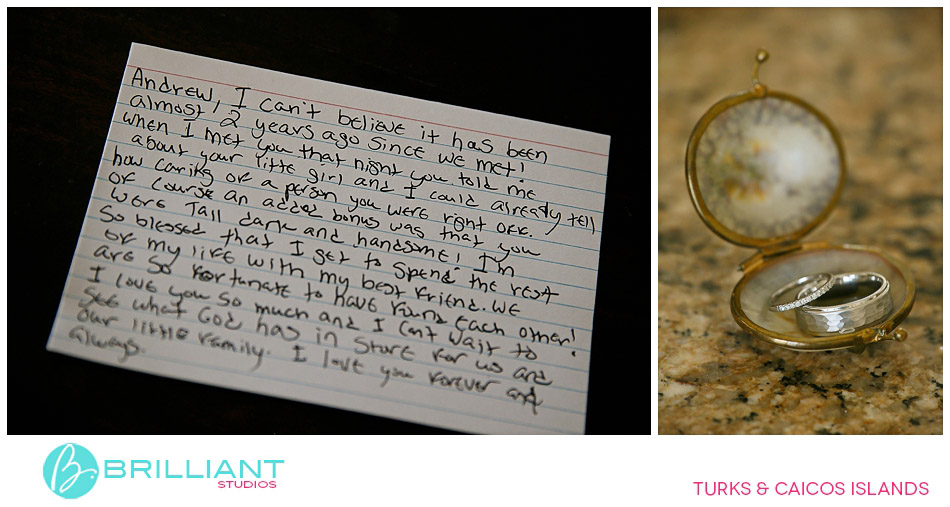 Andrew, I can't believe it has been
almost 2 years ago since we met!
when I met you that night you told me
about your little girl and I could already tell
how caring of a person you were right off.
Of course an added bonus was that you
were Tall dark and handsome! I'm
So blessed that I get to spend the rest
of my life with my best friend. We
are so fortunate to have found each other!
I love you so much and I can't wait to
see what God has in store for us and
our little family. I love you forever and
always.
B.
BRILLIANT
STUDIOS
TURKS & CAICOS ISLANDS